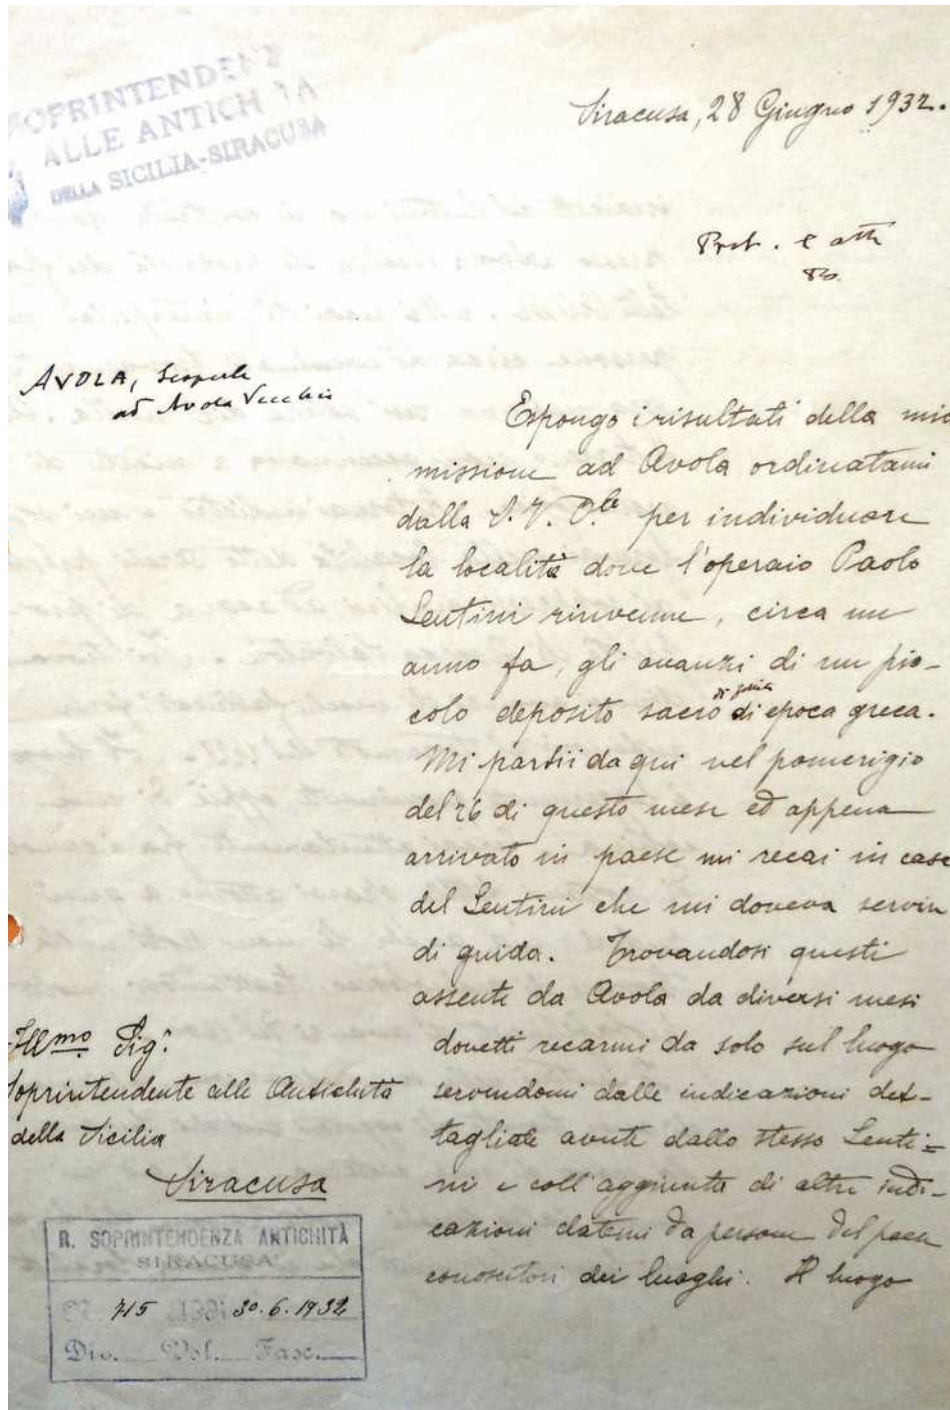 SOPRINTENDENZ
ALLE ANTICHITA
DELLA SICILIA-SIRACUSA
Siracusa, 28 Giugno 1932.
Prot. e atti
AVOLA, Scoperte
ad Avola Vecchia
Espongo i risultati della mia
missione ad Avola ordinatami
dalla S. V. Ill. per individuare
la località dove l'operaio Paolo
Lentini rinvenne, circa un
anno fa, gli avanzi di un pic-
colo deposito sacro di epoca greca.
Mi partii da qui nel pomerigio
del 26 di questo mese ed appena
arrivato in paese mi recai in casa
del Lentini che mi doveva servire
di guida. Trovandosi questi
assente da Avola da diversi mesi
dovetti recarmi da solo sul luogo
servendomi dalle indicazioni det-
tagliate avute dallo stesso Lenti=
ni e coll'aggiunta di altre indi-
cazioni datemi da persone del paese
conoscitori dei luoghi. Il luogo
Illmo Sigr
Soprintendente alle Antichità
della Sicilia
Siracusa
R. SOPRINTENDENZA ANTICHITÀ
SIRACUSA
715 30.6.1932
Div. Vol. Fasc.